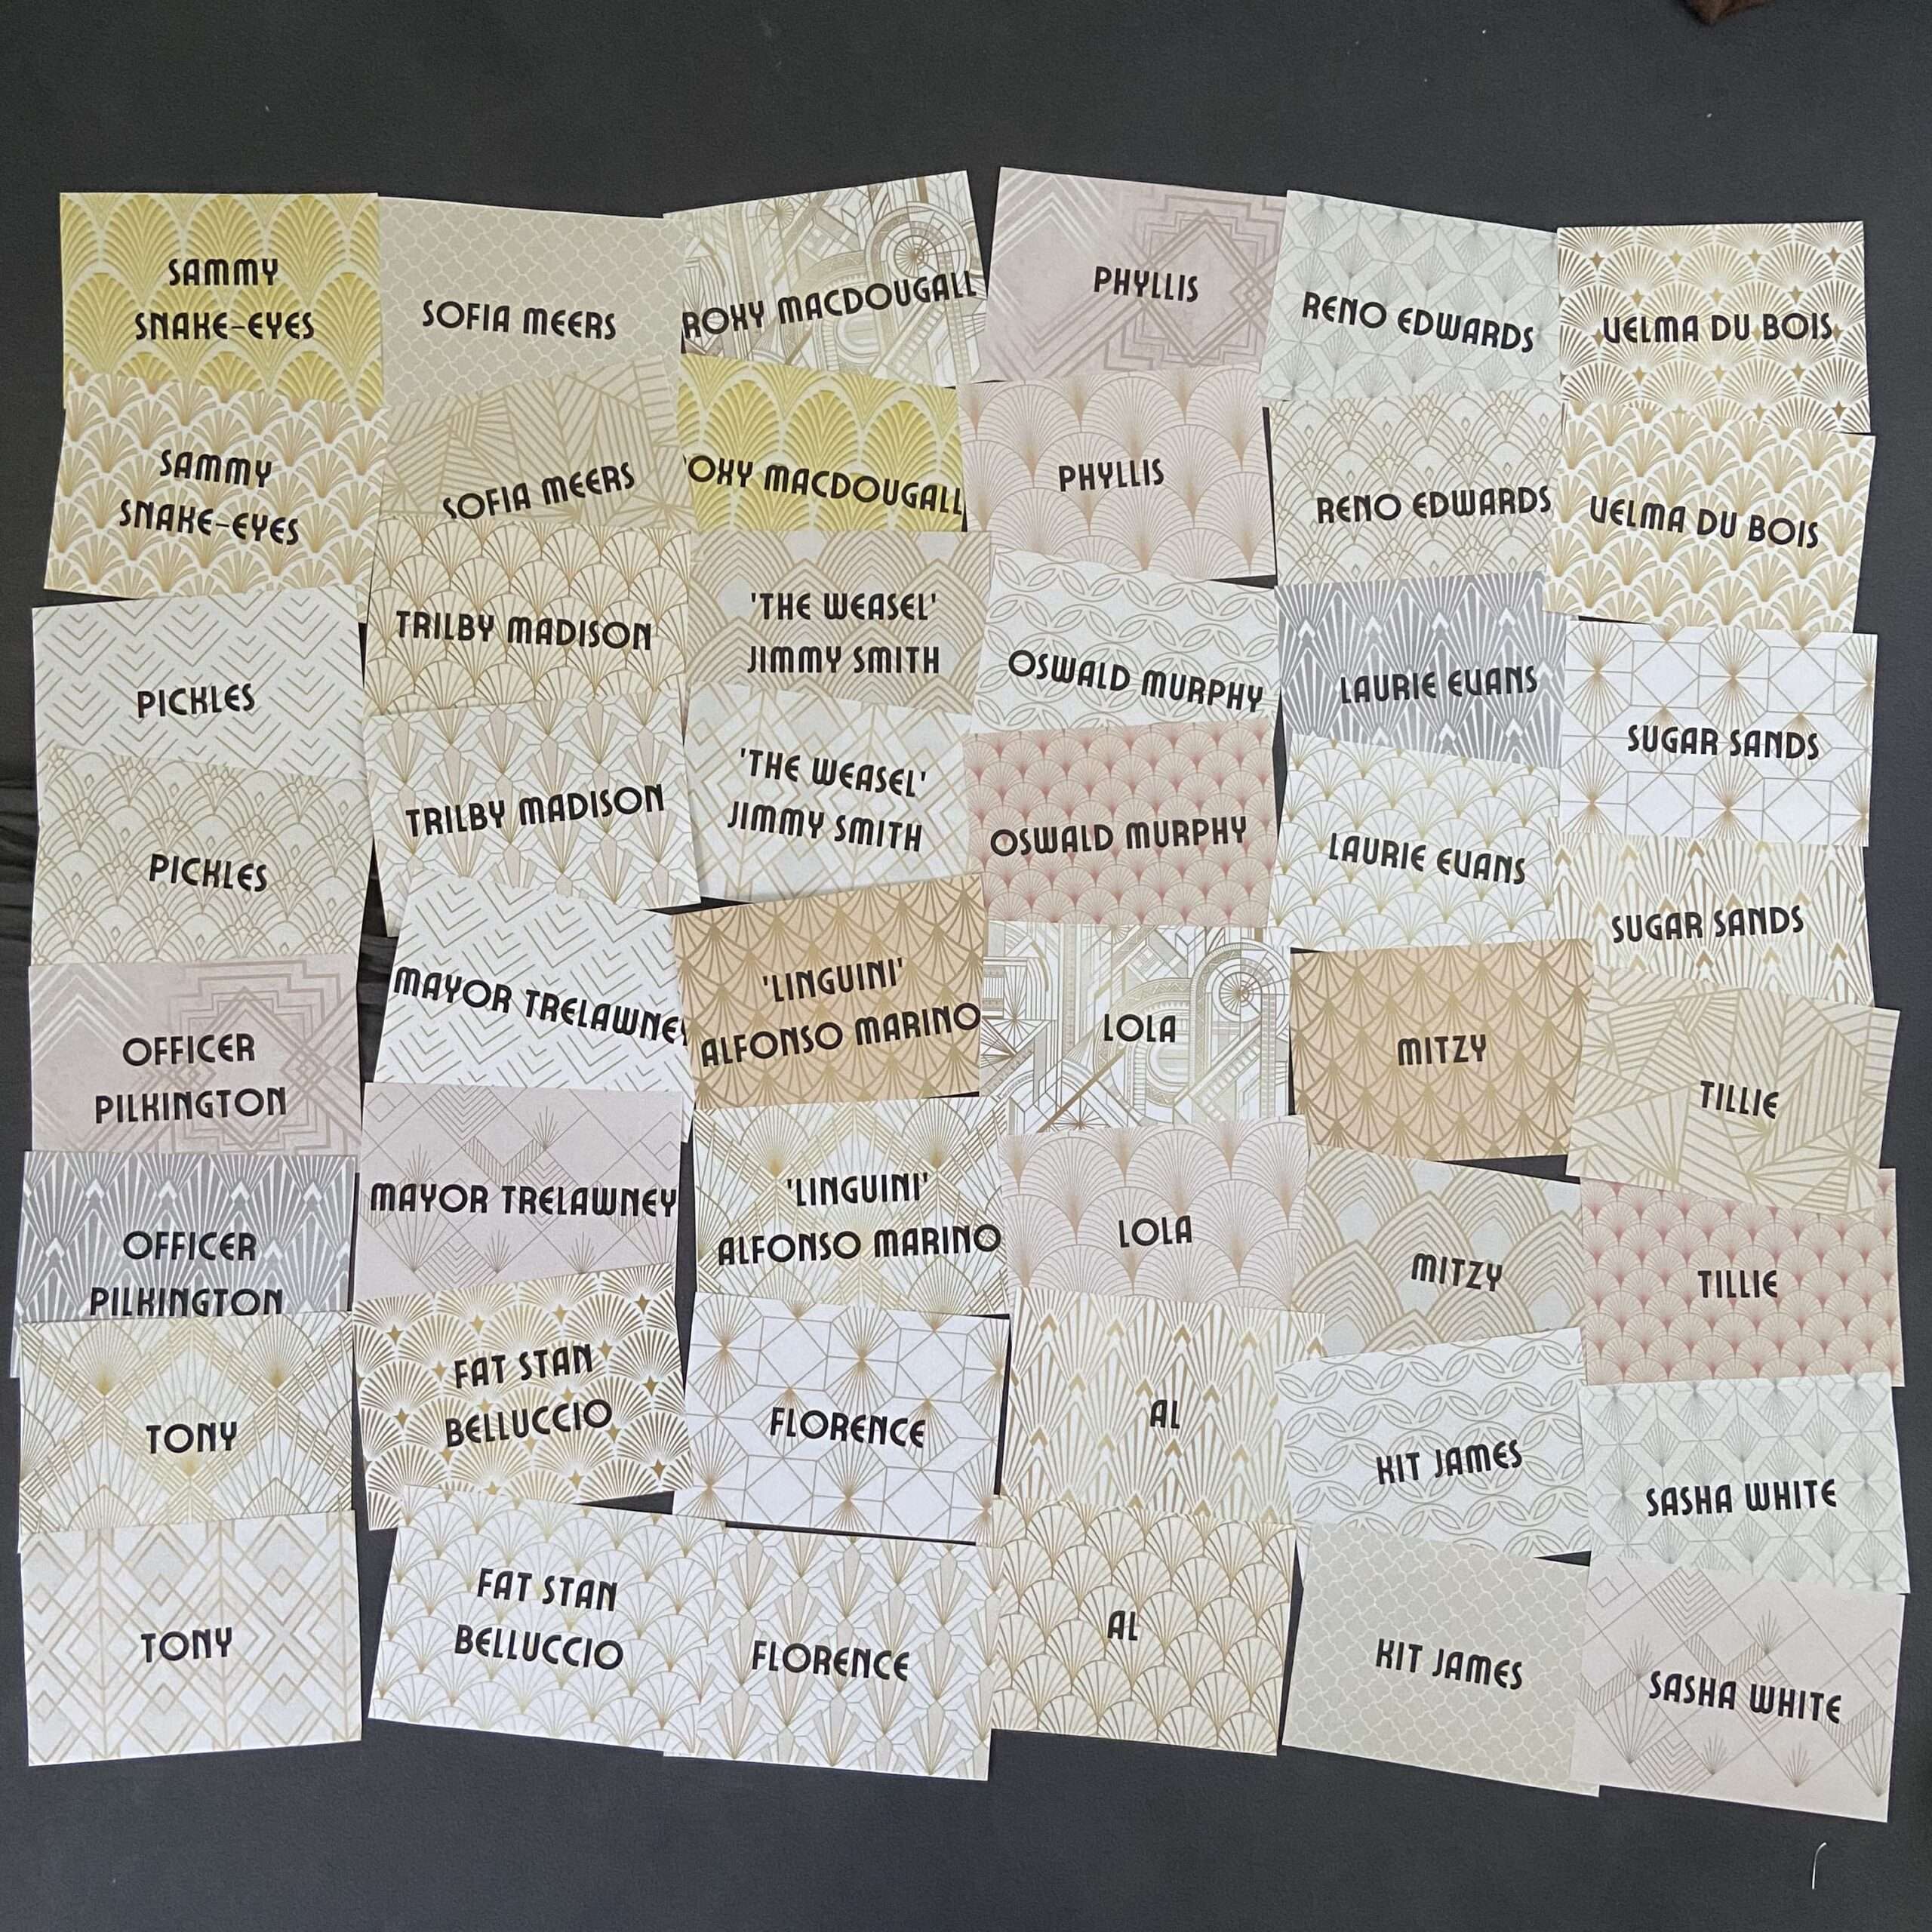 SAMMY
SNAKE-EYES
SOFIA MEERS
ROXY MACDOUGALL
PHYLLIS
RENO EDWARDS
VELMA DU BOIS
SAMMY
SNAKE-EYES
SOFIA MEERS
OXY MACDOUGALL
PHYLLIS
RENO EDWARDS
VELMA DU BOIS
PICKLES
TRILBY MADISON
'THE WEASEL'
JIMMY SMITH
OSWALD MURPHY
LAURIE EVANS
SUGAR SANDS
PICKLES
TRILBY MADISON
'THE WEASEL'
JIMMY SMITH
OSWALD MURPHY
LAURIE EVANS
SUGAR SANDS
OFFICER
PILKINGTON
MAYOR TRELAWNEY
'LINGUINI'
ALFONSO MARINO
LOLA
MITZY
TILLIE
OFFICER
PILKINGTON
MAYOR TRELAWNEY
'LINGUINI'
ALFONSO MARINO
LOLA
MITZY
TILLIE
TONY
FAT STAN
BELLUCCIO
FLORENCE
AL
KIT JAMES
SASHA WHITE
TONY
FAT STAN
BELLUCCIO
FLORENCE
AL
KIT JAMES
SASHA WHITE